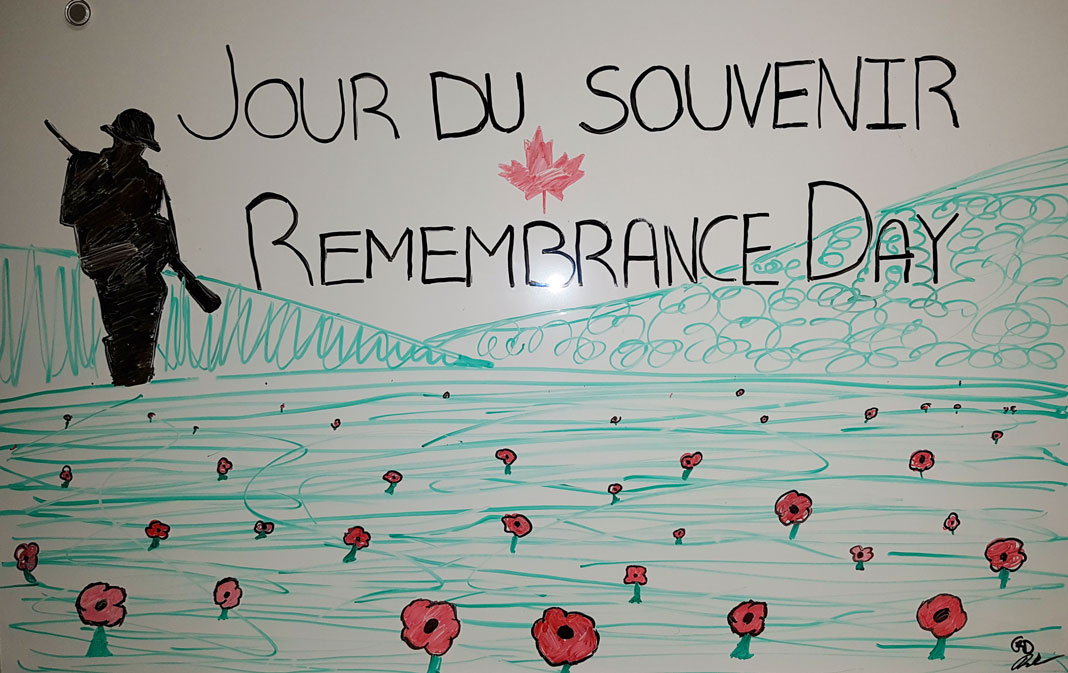 JOUR DU SOUVENIR
REMEMBRANCE DAY